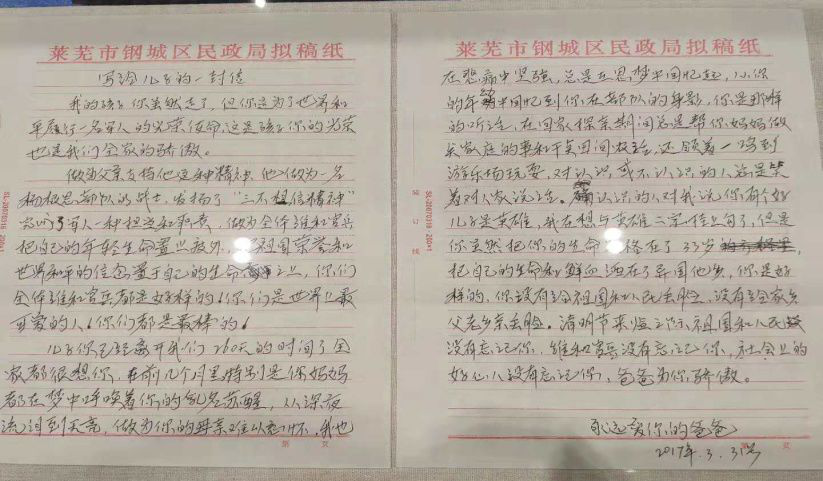 莱芜市钢城区民政局拟稿纸
写给儿子的一封信
我的孩子你虽然走了，但你是为了世界和
平履行一名军人的光荣使命，这是孩子你的光荣
也是我们全家的骄傲。
做为父亲支持他这种精神，他做为一名
杨根思部队的战士，发扬了“三不相信精神”
实响了军人一种担当和职责，做为全体维和官兵
把自己的年轻生命置之度外，祖国荣誉和
世界和平的信念置于自己的生命之上，你们
全体维和官兵都是好样的！你们是世界上最
可爱的人！你们都是最棒的！
儿子你已经离开我们260天的时间了全
家都很想你，在前几个月里特别是你妈妈
都在梦中呼唤着你的乳名苏醒，从深夜
流泪到天亮，做为你的母亲难以忘怀，我也
第 页
SL-20070318·200×1
装订线
莱芜市钢城区民政局拟稿纸
在悲痛中坚强，总是在思梦中回忆起，从你
的年幼中回忆到你在部队的身影，你是那样
的听话，在回家探亲期间总是帮你妈妈做
些家庭的事和干些田间农活，还领着一鸣到
游乐场玩耍，对认识或不认识的人总是笑
着对人家说话。认识的人对我说你有个好
儿子是英雄，我在想与英雄二字挂上勾了，但是
你虽然把你的生命定格在了33岁
把自己的生命和鲜血洒在了异国他乡，你是好
样的，你没有给祖国和人民丢脸，没有给家乡
父老乡亲丢脸。清明节来临之际祖国和人民
没有忘记你，维和官兵没有忘记你，社会上的
好心人没有忘记你，爸爸为你骄傲。
永远爱你的爸爸
2017年.3.31号
第 页